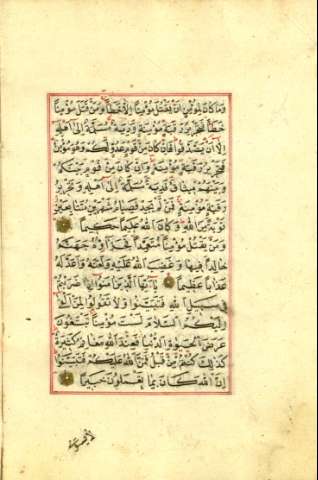 وما كان لمؤمن ان يقتل مؤمنا الا خطأ ومن قتل مؤمنا
خطأ فتحرير رقبة مؤمنة ودية مسلمة الى اهله
الا ان يصدقوا فان كان من قوم عدو لكم وهو مؤمن
فتحرير رقبة مؤمنة وان كان من قوم بينكم
وبينهم ميثاق فدية مسلمة الى اهله وتحرير
رقبة مؤمنة فمن لم يجد فصيام شهرين متتابعين
توبة من الله وكان الله عليما حكيما
ومن يقتل مؤمنا متعمدا فجزاؤه جهنم
خالدا فيها وغضب الله عليه ولعنه واعد له
عذابا عظيما يا ايها الذين امنوا اذا ضربتم
في سبيل الله فتبينوا ولا تقولوا لمن القى
اليكم السلام لست مؤمنا تبتغون
عرض الحيوة الدنيا فعند الله مغانم كثيرة
كذلك كنتم من قبل فمن الله عليكم فتبينوا
ان الله كان بما تعملون خبيرا